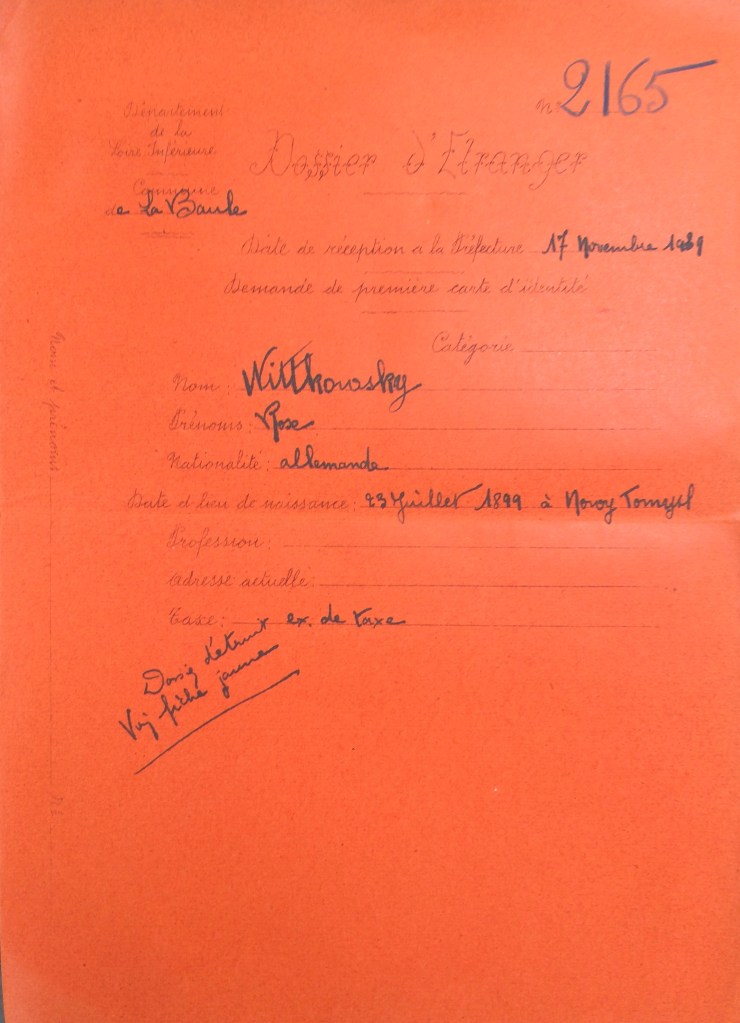 N° 2165
Département
de la
Loire Inférieure
Commune
de La Baule
Dossier d'Etranger
Date de réception a la Préfecture 17 Novembre 1939
Demande de première carte d'identité
Catégorie
Nom : Wittkowsky
Prénoms : Rose
Nationalité : allemande
Date et lieu de naissance : 23 Juillet 1899 à Novoy Tomysl
Profession :
Adresse actuelle :
Taxe : ex. de taxe
détruit
fiche jaune
Nom et prénoms
N°